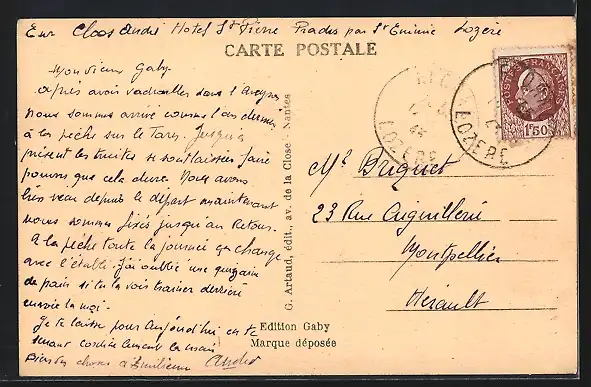 Exr Cloos André Hotel St Pierre Prades par Ste Enimie Lozère
CARTE POSTALE
Mon vieux Gaby
après avoir vadrouiller dans l'Aveyron
nous sommes arrivé comme l'an dernier
à la pêche sur le Tarn. Jusqu'à
présent les truites se sont laissées faire
pourvu que cela dure. Nous avons
très peu depuis le départ maintenant
nous sommes fixés jusqu'au retour.
A la pêche toute la journée ça change
avec l'établi. J'ai oublié une
de pain si tu la vois trainer derrière
envoie la moi.
Je te laisse pour aujourd'hui en te
serrant cordialement la main
choses à Emilienne André
G. Artaud, édit., av. de la Close - Nantes
Edition Gaby
Marque déposée
LOZERE
LOZERE
POSTES FRANÇAISES
1F50
Mr Briquet
23 Rue Aiguillerie
Montpellier
Hérault